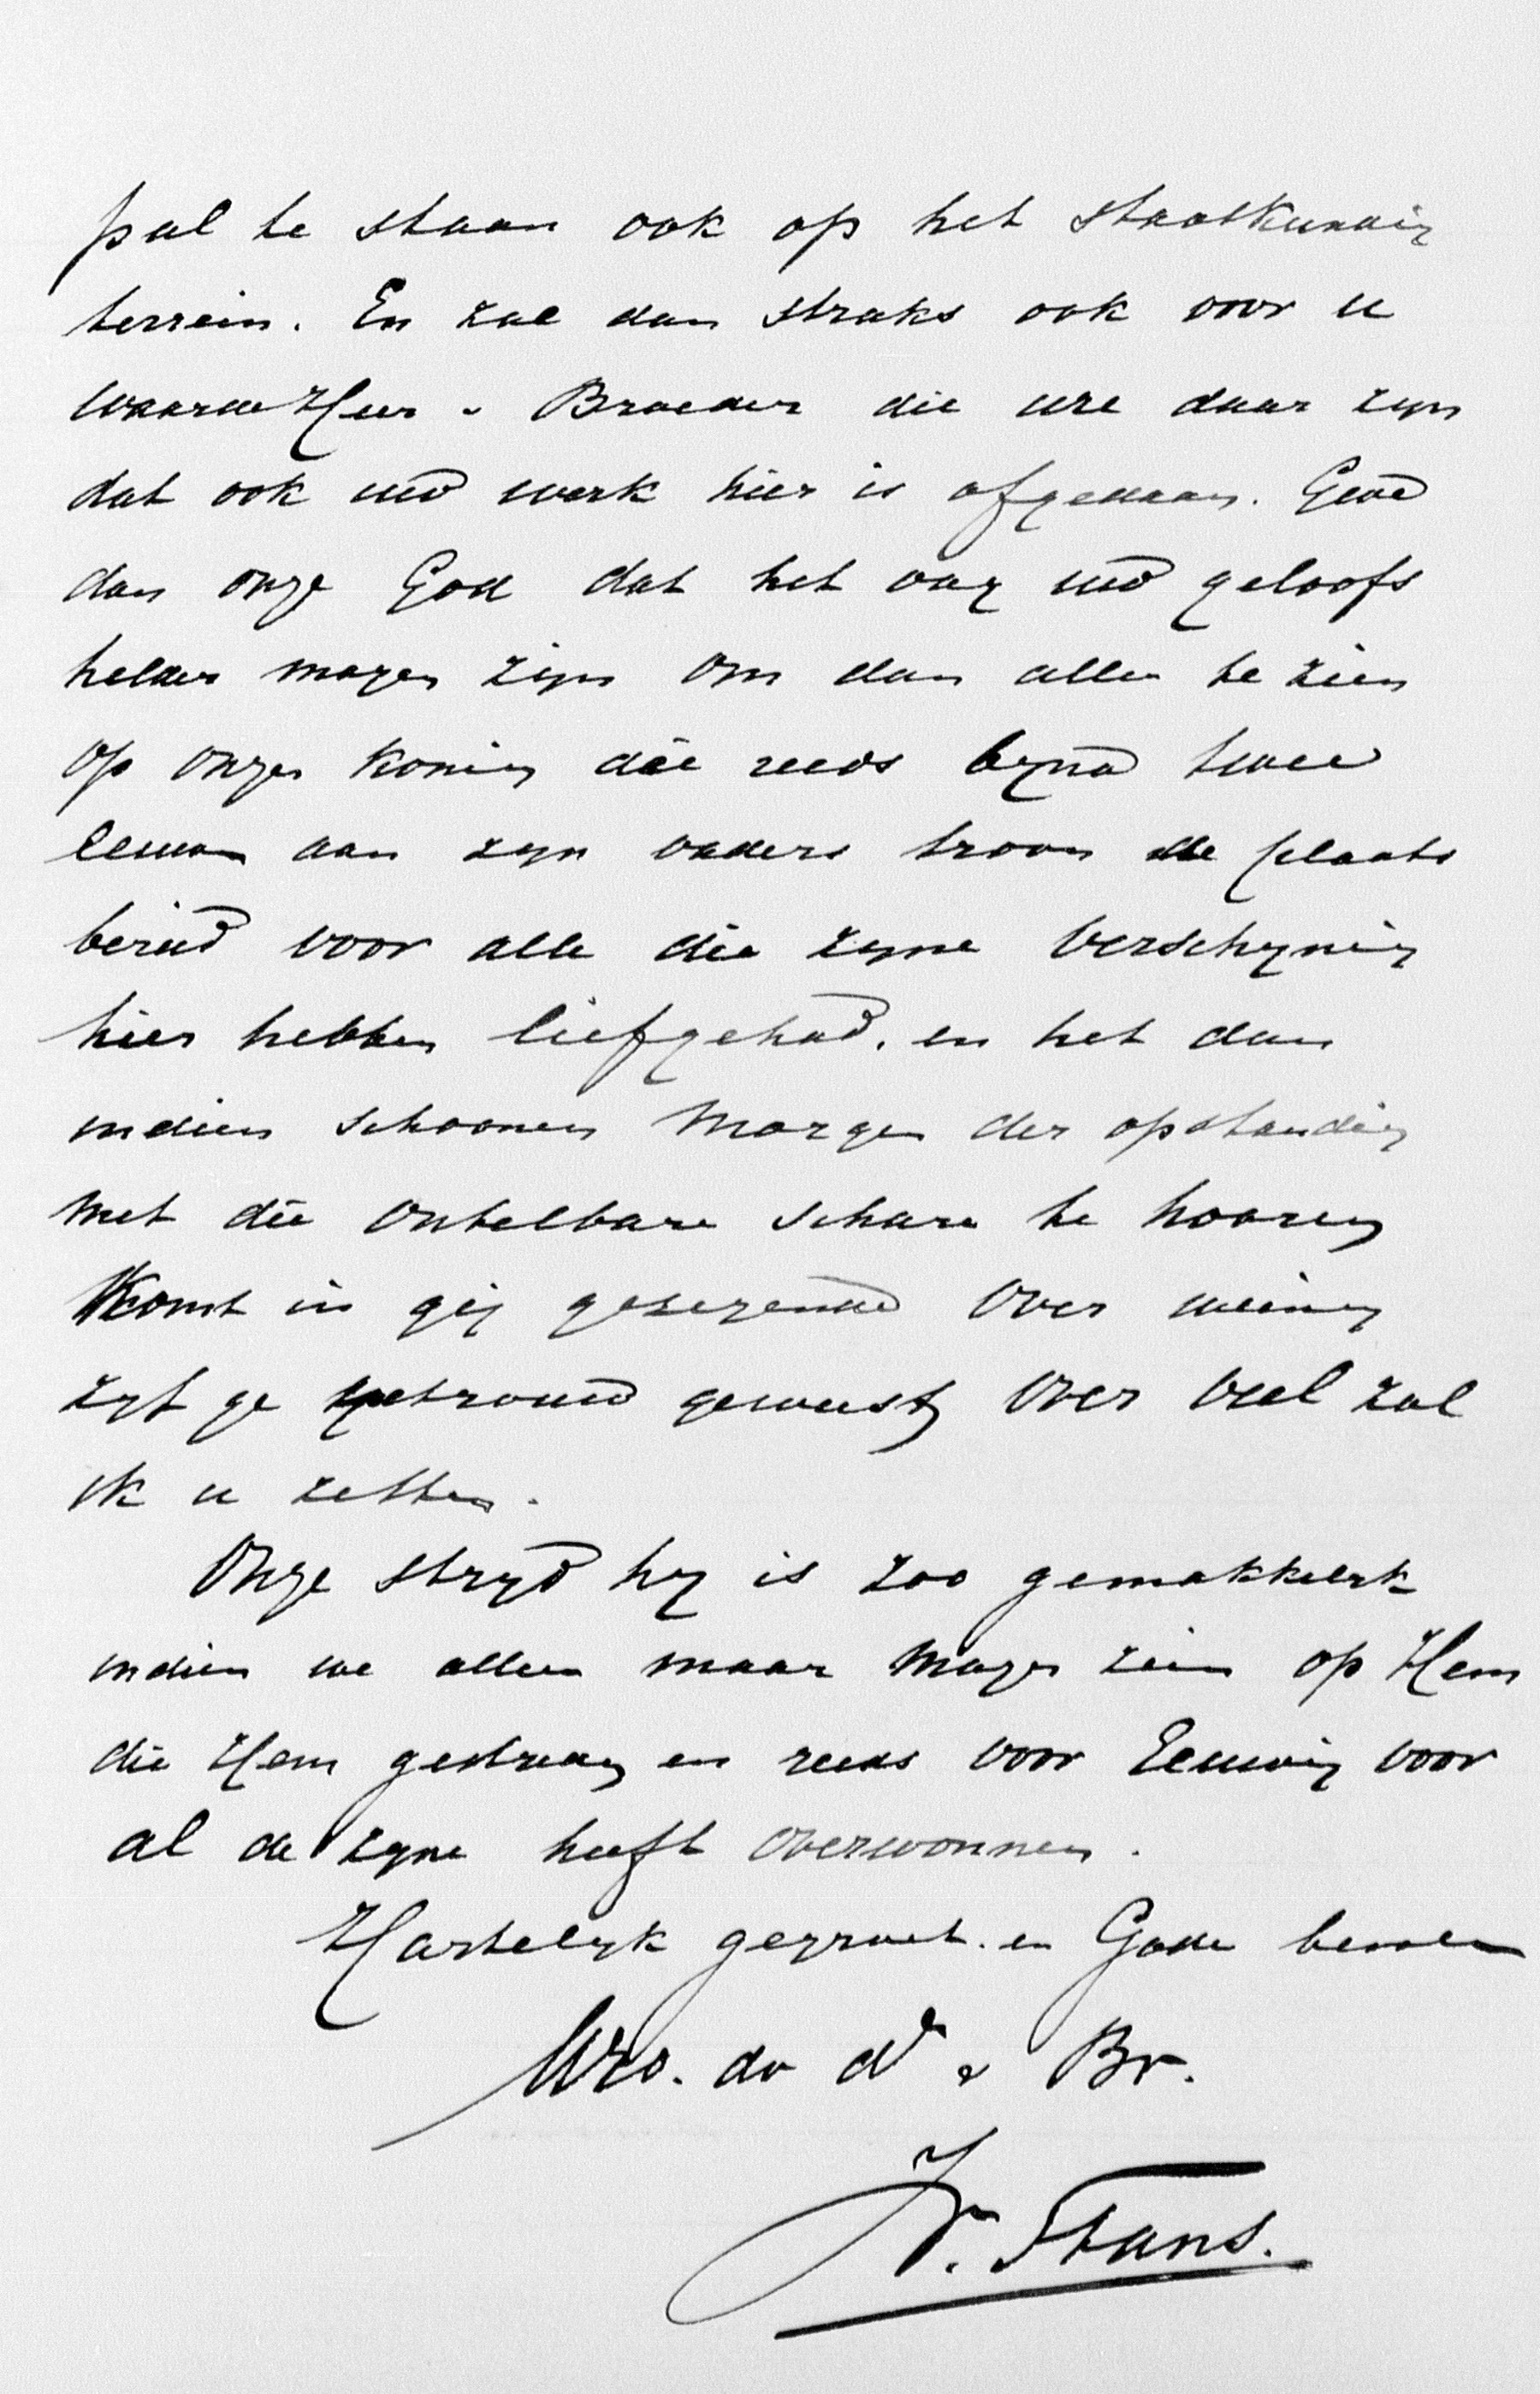 pal te staan ook op het staatkundig
terrein. En zal dan straks ook voor u
waarde Heer & Broeder die ure daar zyn
dat ook uw werk hier is afgedaan. Geve
dan onze God dat het oog uws geloofs
helder mogen zijn om dan alleen te zien
op onzen Koning die reeds byna twee
eeuwen aan zyn vaders troon de plaats
bereid voor alle die zyne verschyning
hier hebben liefgehad. en het dan
indien schoonen Morgen der opstanding
met die ontelbare schare te hooren
Komt in gij gezegende over weinig
zyt ge getrouw geweest over veel zal
ik u zetten.
Onze stryd hy is zoo gemakkelyk
indien we alleen maar mogen zien op Hem
die Hem gestreden en reeds voor Eeuwig voor
al de zyne heeft overwonnen.
Hartelyk gegroet. en Gode bevolen
Uwo. dv dr & Br.
Stans.